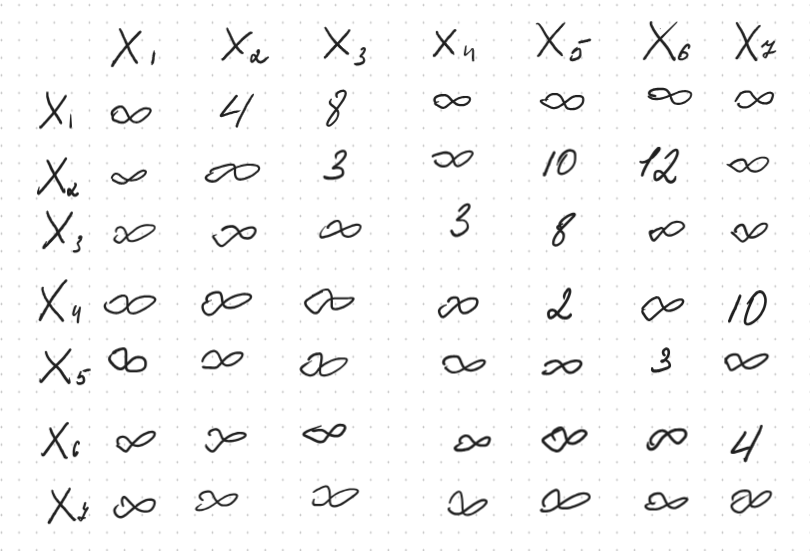 X₁ X₂ X₃ X₄ X₅ X₆ X₇
X₁ ∞ 4 8 ∞ ∞ ∞ ∞
X₂ ∞ ∞ 3 ∞ 10 12 ∞
X₃ ∞ ∞ ∞ 3 8 ∞ ∞
X₄ ∞ ∞ ∞ ∞ 2 ∞ 10
X₅ ∞ ∞ ∞ ∞ ∞ 3 ∞
X₆ ∞ ∞ ∞ ∞ ∞ ∞ 4
X₇ ∞ ∞ ∞ ∞ ∞ ∞ ∞